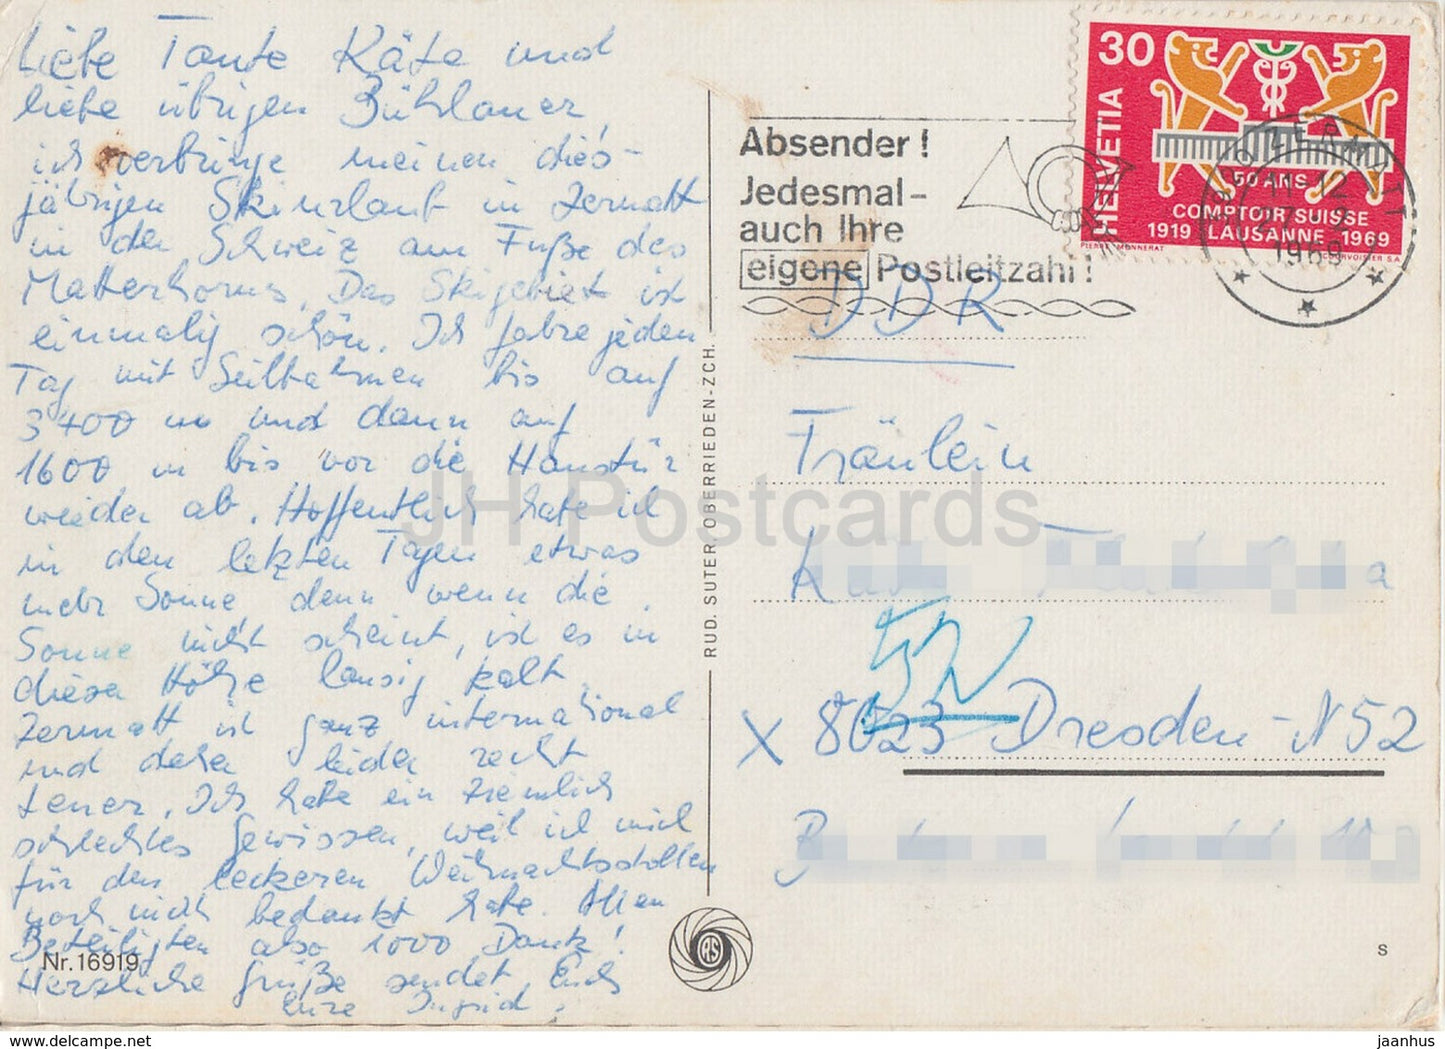 Liebe Tante Käte und
liebe übrigen Bühlauer,
ich verbringe meinen dies-
jährigen Skiurlaub in Zermatt
in der Schweiz am Fuße des
Matterhorns. Das Skigebiet ist
einmalig schön. Ich fahre jeden
Tag mit Seilbahnen bis auf
3400 m und dann auf
1600 m bis vor die Haustür
wieder ab. Hoffentlich habe ich
in den letzten Tagen etwas
mehr Sonne, denn wenn die
Sonne nicht scheint, ist es in
dieser Höhe lausig kalt.
Zermatt ist ganz international
und daher leider recht
teuer. Ich habe ein ziemlich
schlechtes Gewissen, weil ich mich
für den leckeren Weihnachtsstollen
noch nicht bedankt habe. Allen
Beteiligten also 1000 Dank!
Herzliche Grüße sendet Euch
Eure Ingrid.
Nr. 16919
RUD. SUTER, OBERRIEDEN-ZCH.
RS
Absender!
Jedesmal-
auch Ihre
eigene Postleitzahl!
30
HELVETIA
50 ANS
COMPTOIR SUISSE
1919 LAUSANNE 1969
PIERRE MONNERAT
COURVOISIER S.A.
ZERMATT
12
1969
DDR
Fräulein
X 8023 Dresden-N52
S
JH Postcards
delcampe.net
jaanhus